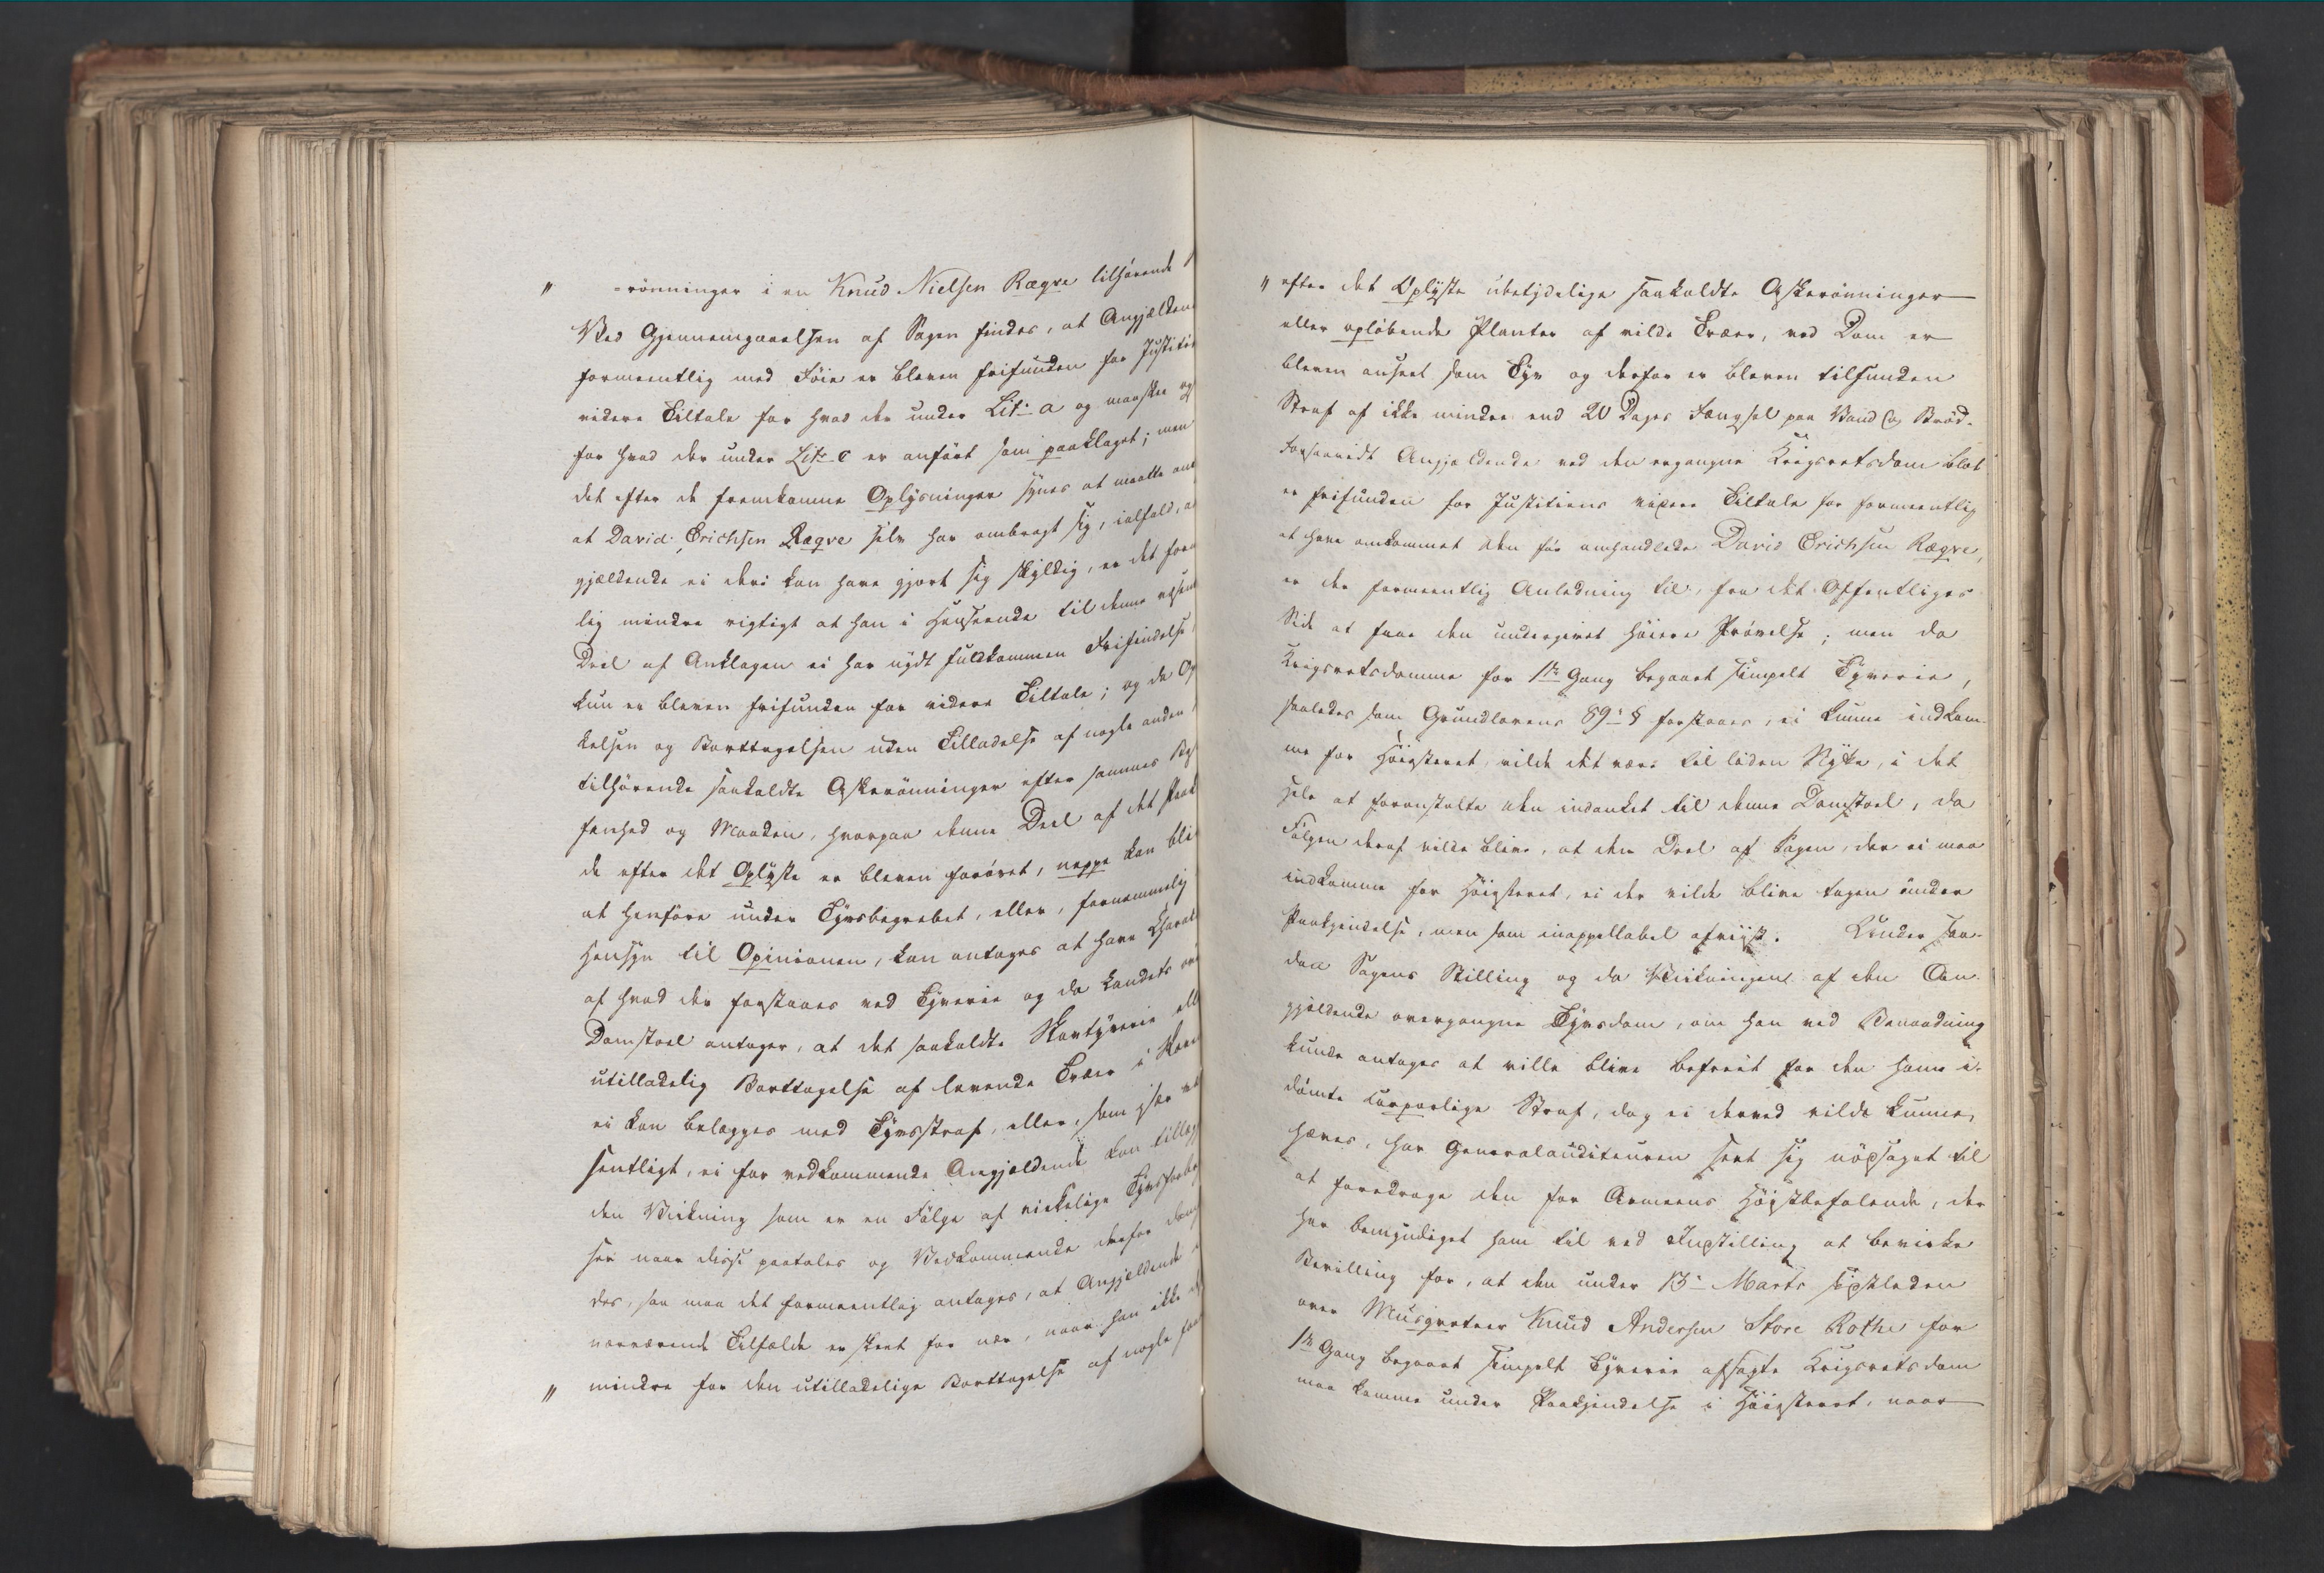 " -rönninger i en Knud Nielsen Rægve tilhørende
Ved Gjennemgaaelsen af Sagen findes, at Angjælden
formeentlig med Föie er bleven frifunden for Justitie
videre Tiltale for hvad der under Litr a og maaskee og
for hvad der under Litr c er anfört som paaklaget; men
det efter de fremkomne Oplysninger synes at maatte ant
at David Erichsen Rægve selv har ombragt sig, ialfald, a
gjældende ei deri kan have gjort sig skyldig, er det form
lig mindre rigtigt at han i Henseende til denne væsent
Deel af Anklagen ei har nydt fuldkommen Frifindelse,
kun er bleven frifunden for videre Tiltale; og da Op
kelsen og Borttagelsen uden Tilladelse af nogle anden
tilhörende saakaldte Askerönninger efter sammes Be
fenhed og Maaden, hvorpaa denne Deel af det Paak
de efter det Oplyste er bleven forövet, neppe kan bli
at henföre under Tyvsbegrebet, eller, fornemmelig
Hensyn til Opinionen, kan antages at have Charak
af hvad der forstaaes ved Tyverie og da Landets
Domstoel antager, at det saakaldte Skovtyverie ell
utilladelig Borttagelse af levende Træer i Skov
ei kan belægges med Tyvsstraf, eller, som især
sentligt, ei for vedkommende Angjældende kan tillæg
den Virkning som er en Fölge af virkelige Tyvsforbry
ser naar disse paatales og Vedkommende derfor döm
des, saa maa det formeentlig antages, at Angjældende
nærværende Tilfælde er skeet for nær, naar han ikke
" mindre for den utilladelige Borttagelse af nogle faa
" efter det Oplyste ubetydelige saakaldte Askerönninger
eller oplöbende Planter af vilde Træer, ved Dom er
bleven anseet som Tyv og derfor er bleven tilfunden
Straf af ikke mindre end 20 Dages Fængsel paa Vand og Bröd.
Forsaavidt Angjældende ved den ergangne Krigsretsdom blot
er frifunden for Justitiens videre Tiltale for formeentlig
at have omkommet den för omhandlede David Erichsen Rægve,
er der formeentlig Anledning til, fra det Offentliges
Side at faae den undergivet höiere Prövelse; men da
Krigsretsdomme for 1ste Gang begaaet simpelt Tyverie,
saaledes som Grundlovens 89de § forstaaes, ei kunne indkom-
me for Höiesteret, vilde det være til liden Nytte, i det
Hele at foranstalte den indanket til denne Domstoel, da
Fölgen deraf vilde blive, at den Deel af Sagen, der ei maa
indkomme for Höiesteret, ei der vilde blive tagen under
Paakjendelse, men som inappellabel afviist. Under saa-
dan Sagens Stilling og da Virkningen af den An-
gjældende overgangne Tyvsdom, om han ved Benaadning
kunde antages at ville blive befriet for den ham i-
dömte corporlige Straf, dog ei derved vilde kunne
hæves, har Generalauditeuren seet sig nödsaget til
at foredrage den for Armeens Höistbefalende, der
har bemyndiget ham til ved Indstilling at bevirke
Bevilling for, at den under 13de Marts sidstleden
over Musqveteer Knud Andersen Store Rothe for
1ste Gang begaaet simpelt Tyverie afsagte Krigsretsdom
maa komme under Paakjendelse i Höiesteret, naar